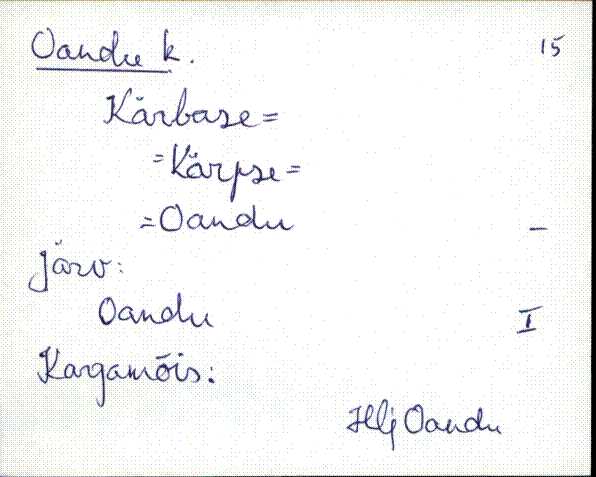 Oandu k. 15
Kärbase=
=Kärpse=
=Oandu –
järv:
Oandu I
Kargamõis:
Hlj Oandu